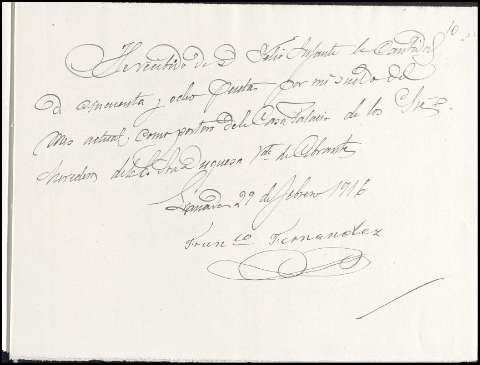 10
He recibido de D. Felix Infante la Cantidad
de cincuenta y ocho pesetas por mi sueldo del
mes actual como portero de la Casa Palacio de los Sres
herederos de la Exma Sra Duquesa Vda de Abrantes
Granada 29 de febrero 1916
Francco Fernandez